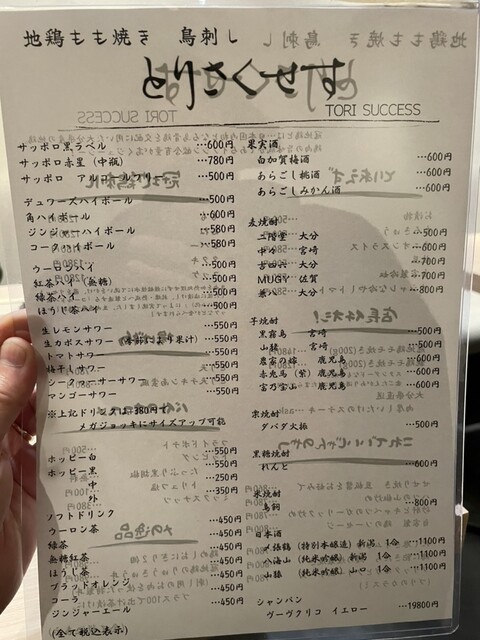 地鶏もも焼き 鳥刺し
とりさくせす
TORI SUCCESS
サッポロ黒ラベル …600円
サッポロ赤星(中瓶) …780円
サッポロ アルコールフリー …500円
デュワーズハイボール …500円
角ハイボール …600円
ジンジャーハイボール …580円
コークハイボール …580円
ウーロンハイ …500円
紅茶ハイ(無糖) …500円
緑茶ハイ …500円
ほうじ茶ハイ …500円
生レモンサワー …550円
生カボスサワー …550円
トマトサワー …550円
梅干しサワー …550円
シークワーサーサワー …550円
マンゴーサワー …550円
※上記ドリンクは+380円で
メガジョッキにサイズアップ可能
ホッピー白 …550円
ホッピー黒 …550円
中 …250円
外 …350円
ソフトドリンク
ウーロン茶 …450円
緑茶 …450円
無糖紅茶 …450円
ほうじ茶 …450円
ブラッドオレンジ …450円
コーラ …450円
ジンジャーエール …450円
(全て税込表示)
果実酒
白加賀梅酒 …600円
あらごし桃酒 …600円
あらごしみかん酒 …600円
麦焼酎
二階堂 大分 …500円
中々 宮崎 …600円
吉四六 大分 …700円
MUGY 佐賀 …700円
兼八 大分 …800円
芋焼酎
黒霧島 宮崎 …500円
山猿 宮崎 …500円
農家の嫁 鹿児島 …600円
赤兎馬(紫) 鹿児島 …600円
富乃宝山 鹿児島 …600円
栗焼酎
ダバダ火振 …500円
黒糖焼酎
れんと …600円
米焼酎
鳥飼 …800円
日本酒
〆張鶴(特別本醸造)新潟 1合 …1100円
八海山(純米吟醸)新潟 1合 …1100円
山猿(純米吟醸)山口 1合 …1100円
シャンパン
ヴーヴクリコ イエロー …19800円